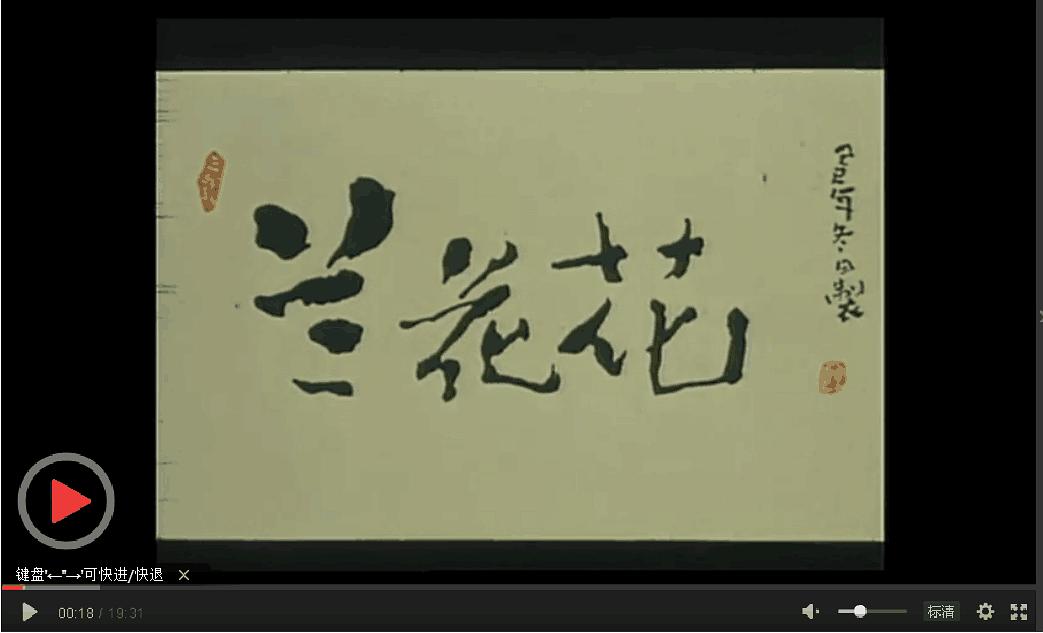 兰花花
年冬日製
键盘'←''→'可快进/快退 ×
00:18 / 19:31
标清